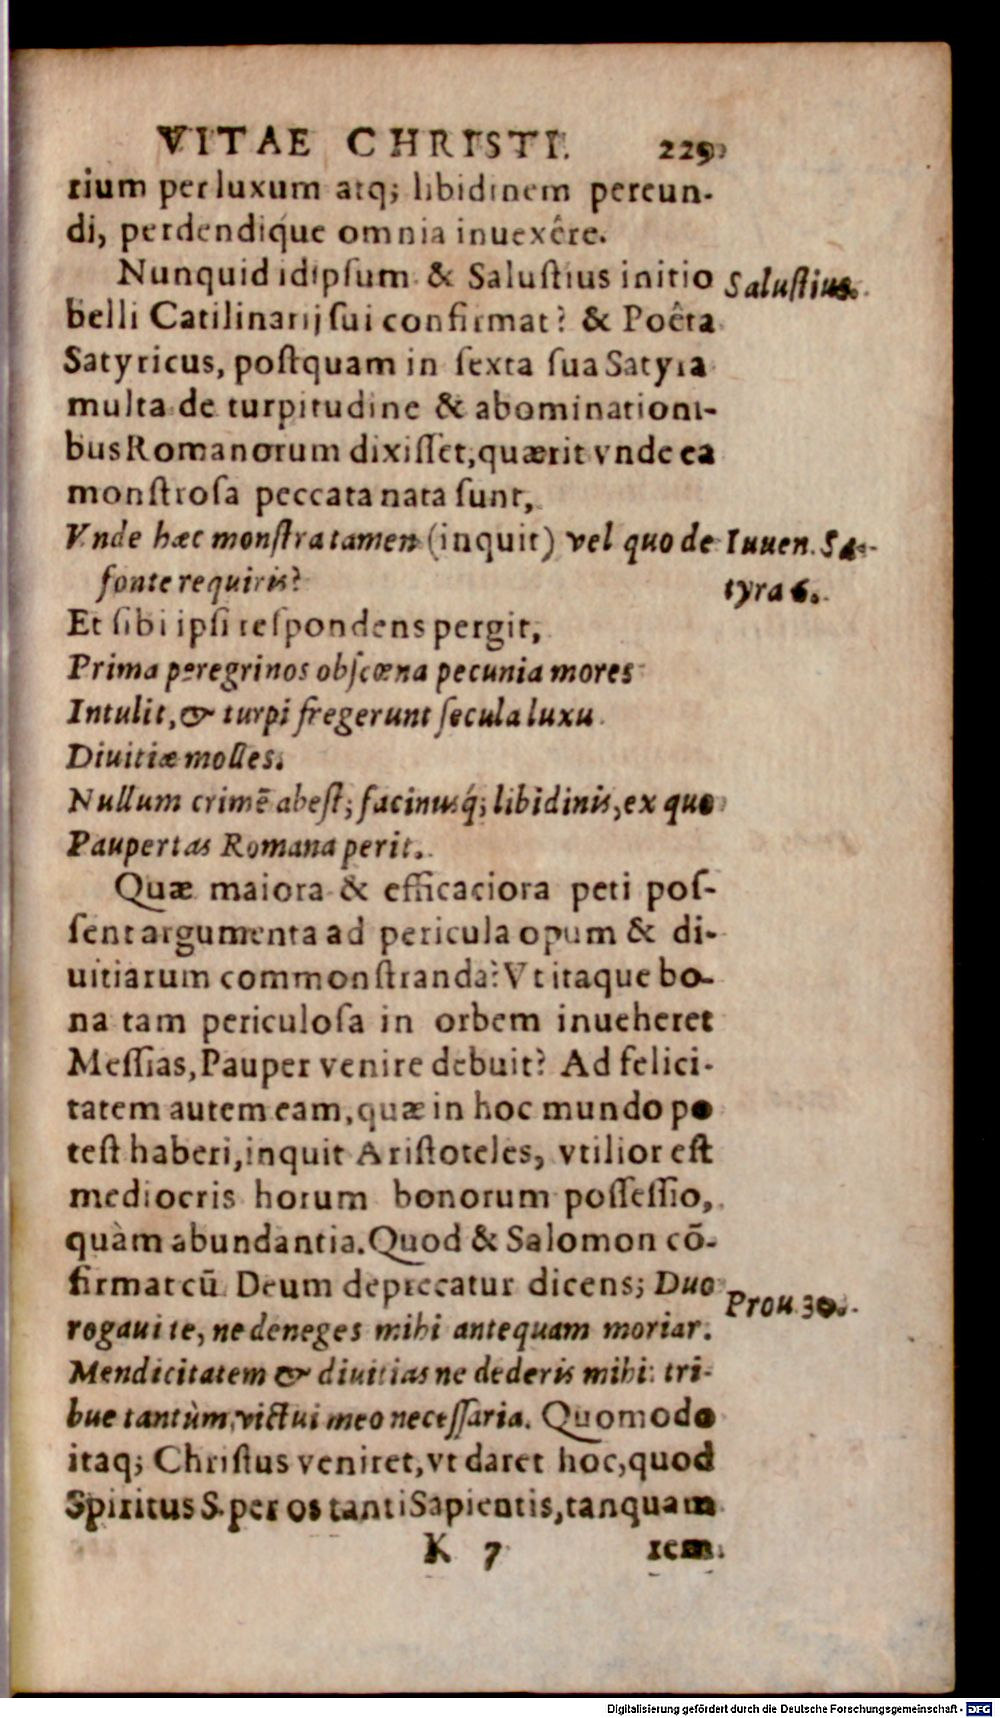 VITAE CHRISTI. 229
rium per luxum atq; libidinem pereun-
di, perdendiq́ue omnia inuexêre.
Nunquid idipsum & Salustius initio
Salustius.
belli Catilinarij sui confirmat? & Poêta
Satyricus, postquam in sexta sua Satyra
multa de turpitudine & abominationi-
bus Romanorum dixisset, quærit vnde ea
monstrosa peccata nata sunt,
Vnde hæc monstra tamen (inquit) vel quo de
Iuuen. Sa-
fonte requiris?
tyra 6.
Et sibi ipsi respondens pergit,
Prima peregrinos obscœna pecunia mores
Intulit, & turpi fregerunt secula luxu
Diuitiæ molles.
Nullum crimē abest; facinusq́; libidinis, ex quo
Paupertas Romana perit.
Quæ maiora & efficaciora peti pos-
sent argumenta ad pericula opum & di-
uitiarum commonstranda? Vt itaque bo-
na tam periculosa in orbem inueheret
Messias, Pauper venire debuit? Ad felici-
tatem autem eam, quæ in hoc mundo po
test haberi, inquit Aristoteles, vtilior est
mediocris horum bonorum possessio,
quàm abundantia. Quod & Salomon cō-
firmat cū Deum deprecatur dicens; Duo
Prou 30.
rogaui te, ne deneges mihi antequam moriar.
Mendicitatem & diuitias ne dederis mihi: tri-
bue tantùm victui meo necessaria. Quomodo
itaq; Christus veniret, vt daret hoc, quod
Spiritus S. per os tanti Sapientis, tanquam
K 7 rem.
Digitalisierung gefördert durch die Deutsche Forschungsgemeinschaft - DFG